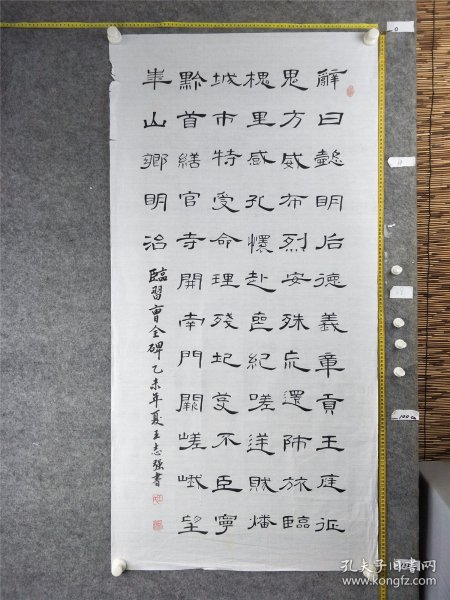 辭曰懿明后德義章貢王庭征
鬼方威布烈安殊荒還師旅臨
槐里感孔懷赴喪紀嗟逆賊燔
城市特受命理殘圮芟不臣寧
黔首繕官寺開南門闕嵯峨望
華山鄉明治
臨習曹全碑乙未年夏王志强書
孔夫子旧书网
www.kongfz.com